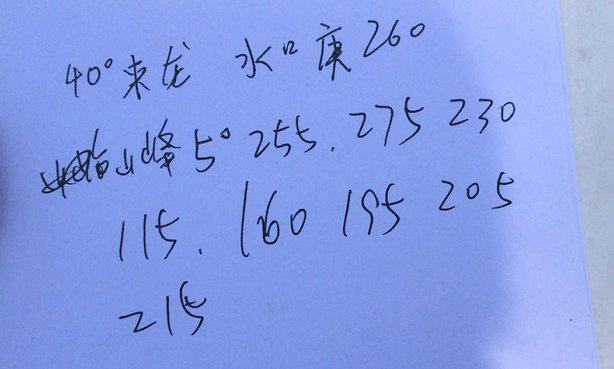 40°来龙 水口庚260
山峰5° 255. 275 230
115. 160 195 205
215